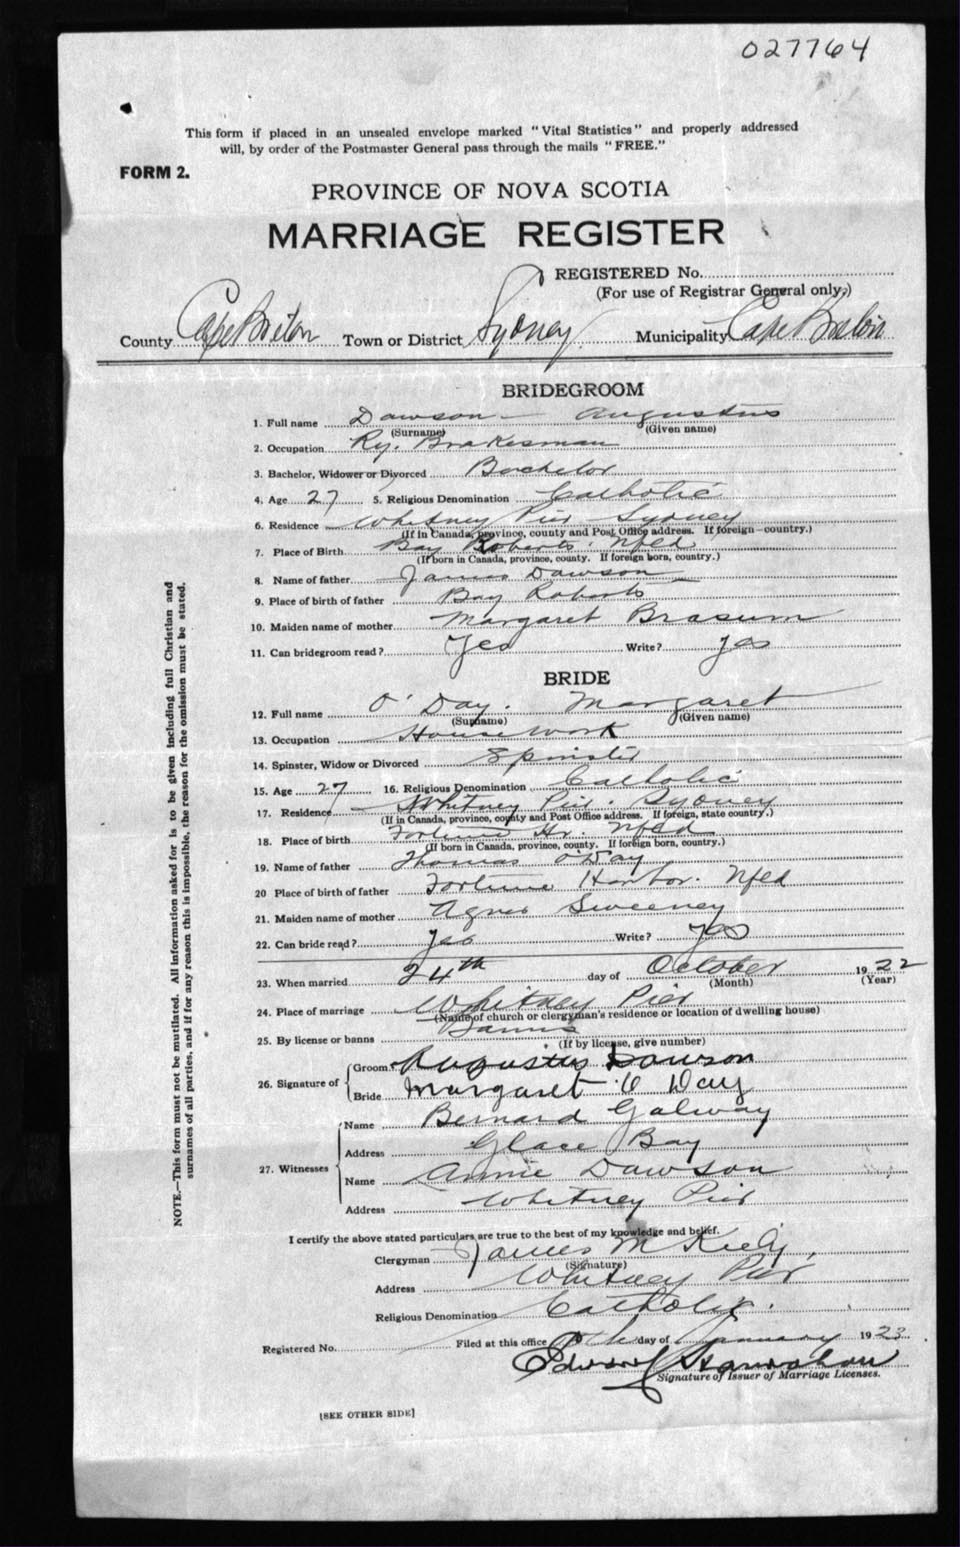 027764
This form if placed in an unsealed envelope marked "Vital Statistics" and properly addressed
will, by order of the Postmaster General pass through the mails "FREE."
FORM 2.
PROVINCE OF NOVA SCOTIA
MARRIAGE REGISTER
REGISTERED No.
(For use of Registrar General only.)
County Cape Breton Town or District Sydney Municipality Cape Breton
BRIDEGROOM
1. Full name Dawson - Augustus
(Surname) (Given name)
2. Occupation Ry. Brakesman
3. Bachelor, Widower or Divorced Bachelor
4. Age 27 5. Religious Denomination Catholic
6. Residence Whitney Pier Sydney
(If in Canada, province, county and Post Office address. If foreign country.)
7. Place of Birth Bay Roberts. Nfld
(If born in Canada, province, county. If foreign born, country.)
8. Name of father James Dawson
9. Place of birth of father Bay Roberts
10. Maiden name of mother Margaret
11. Can bridegroom read? Yes Write? Yes
BRIDE
12. Full name O'Day. Margaret
(Surname) (Given name)
13. Occupation Housework
14. Spinster, Widow or Divorced Spinster
15. Age 27 16. Religious Denomination Catholic
17. Residence Whitney Pier. Sydney
(If in Canada, province, county and Post Office address. If foreign, state country.)
18. Place of birth Fortune Hr. Nfld
(If born in Canada, province, county. If foreign born, country.)
19. Name of father Thomas O'Day
20 Place of birth of father Fortune Harbor. Nfld
21. Maiden name of mother Agnes Sweeney
22. Can bride read? Yes Write? Yes
23. When married 24th day of October 1922
(Month) (Year)
24. Place of marriage Whitney Pier
(Name of church or clergyman's residence or location of dwelling house)
25. By license or banns Banns
(If by license, give number)
26. Signature of
Groom Augustus Dawson
Bride Margaret O Day
27. Witnesses
Name Bernard Galway
Address Glace Bay
Name Annie Dawson
Address Whitney Pier
I certify the above stated particulars are true to the best of my knowledge and belief.
Clergyman James M Kiely,
(Signature)
Address Whitney Pier
Religious Denomination Catholic.
Registered No. Filed at this office day of January 1923
Signature of Issuer of Marriage Licenses.
[SEE OTHER SIDE]
NOTE.—This form must not be mutilated. All information asked for is to be given including full Christian and
surnames of all parties, and if for any reason this is impossible, the reason for the omission must be stated.